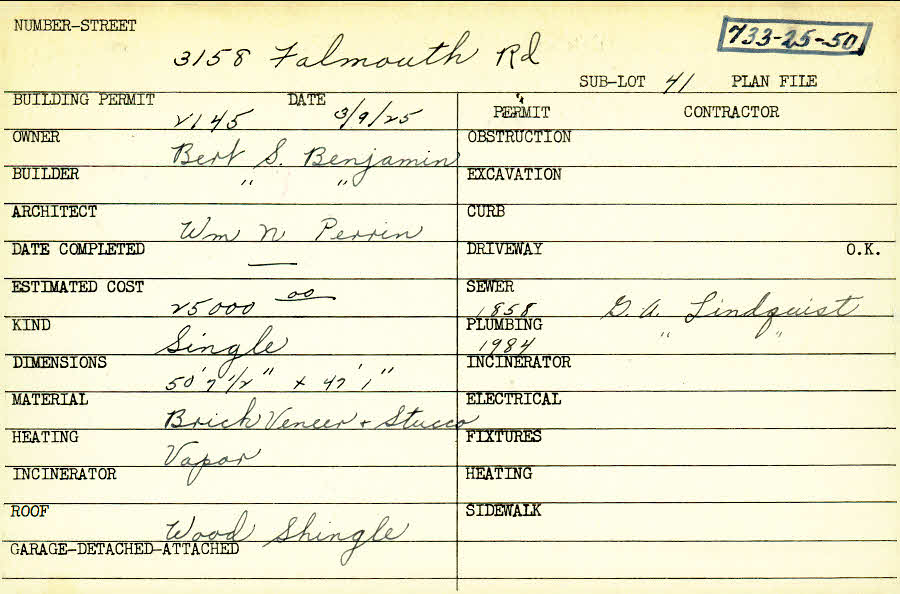 NUMBER-STREET
733-25-50
3158 Falmouth Rd
SUB-LOT 41 PLAN FILE
BUILDING PERMIT 2145 DATE 3/9/25
PERMIT CONTRACTOR
OWNER Bert S. Benjamin
OBSTRUCTION
BUILDER " "
EXCAVATION
ARCHITECT Wm N Perrin
CURB
DATE COMPLETED —
DRIVEWAY O.K.
ESTIMATED COST 25000 00
SEWER 1858 G. A. Lindquist
KIND Single
PLUMBING 1984 " "
DIMENSIONS 50' 7 1/2" x 47' 1"
INCINERATOR
MATERIAL Brick Veneer + Stucco
ELECTRICAL
HEATING Vapor
FIXTURES
INCINERATOR
HEATING
ROOF Wood Shingle
SIDEWALK
GARAGE-DETACHED-ATTACHED